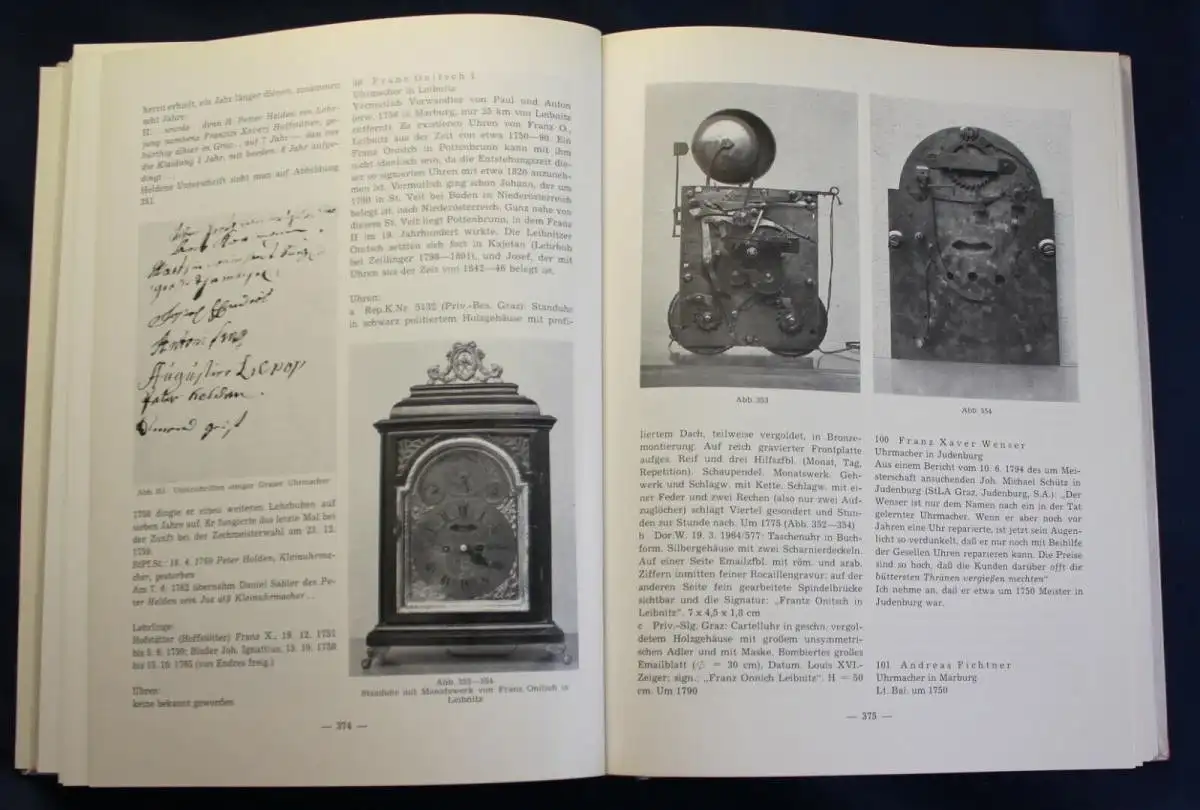 herrn erhielt, ein Jahr länger dienen, zusammen
acht Jahre:
dingt ...
Heldens Unterschrift sieht man auf Abbildung
351.
Augustin Lepop
Peter Helden.
Abb. 351 Unterschriften einiger Grazer Uhrmacher
1758 dingte er einen weiteren Lehrbuben auf
sieben Jahre auf. Er fungierte das letzte Mal bei
der Zunft bei der Zechmeisterwahl am 23. 12.
1759.
StPf.St.: 18. 4. 1769 Peter Helden, Kleinuhrma-
cher, gestorben
Am 7. 6. 1762 übernahm Daniel Sahler des Pe-
ter Helden sein Jus alß Kleinuhrmacher . .
Lehrlinge:
Hofstätter (Hoffstätter) Franz X., 19. 12. 1751
bis 5. 6. 1759; Binder Joh. Ignatius, 13. 10. 1758
bis 13. 10. 1765 (von Endres freig.)
Uhren:
keine bekannt geworden
— 374 —
Uhrmacher in Leibnitz
Vermutlich Verwandter von Paul und Anton
(erw. 1756 in Marburg, nur 25 km von Leibnitz
entfernt). Es existieren Uhren von Franz O.,
Leibnitz aus der Zeit von etwa 1750—90. Ein
Franz Onitsch in Pottenbrunn kann mit ihm
nicht identisch sein, da die Entstehungszeit die-
ser so signierten Uhren mit etwa 1820 anzuneh-
men ist. Vermutlich ging schon Johann, der um
1790 in St. Veit bei Baden in Niederösterreich
belegt ist, nach Niederösterreich. Ganz nahe von
diesem St. Veit liegt Pottenbrunn, in dem Franz
II im 19. Jahrhundert wirkte. Die Leibnitzer
Onitsch setzten sich fort in Kajetan (Lehrbub
bei Zeilinger 1798—1801), und Josef, der mit
Uhren aus der Zeit von 1842—46 belegt ist.
Uhren:
a Rep.K.Nr. 5132 (Priv.-Bes. Graz): Standuhr
in schwarz politiertem Holzgehäuse mit profi-
Abb. 352—354
Standuhr mit Monatswerk von Franz Onitsch in
Leibnitz
Abb. 353
Abb. 354
liertem Dach, teilweise vergoldet, in Bronze-
montierung. Auf reich gravierter Frontplatte
aufges. Reif und drei Hilfszfbl. (Monat, Tag,
Repetition). Schaupendel. Monatswerk. Geh-
werk und Schlagw. mit Kette. Schlagw. mit ei-
ner Feder und zwei Rechen (also nur zwei Auf-
zuglöcher) schlägt Viertel gesondert und Stun-
den zur Stunde nach. Um 1775 (Abb. 352—354)
b Dor.W. 19. 3. 1964/577: Taschenuhr in Buch-
form. Silbergehäuse mit zwei Scharnierdeckeln.
Auf einer Seite Emailzfbl. mit röm. und arab.
Ziffern inmitten feiner Rocaillengravur; auf der
anderen Seite fein gearbeitete Spindelbrücke
sichtbar und die Signatur: „Frantz Onitsch in
Leibnitz“. 7 x 4,5 x 1,8 cm
c Priv.-Slg. Graz: Cartelluhr in geschn. vergol-
detem Holzgehäuse mit großem unsymmetri-
schen Adler und mit Maske. Bombiertes großes
Emailblatt (∅ = 30 cm), Datum. Louis XVI.-
Zeiger; sign.: „Franz Onsich Leibnitz“. H = 50
cm. Um 1790
100 Franz Xaver Wenser
Uhrmacher in Judenburg
Aus einem Bericht vom 10. 6. 1794 des um Mei-
sterschaft ansuchenden Joh. Michael Schütz in
Judenburg (StLA Graz, Judenburg, S.A.): „Der
Wenser ist nur dem Namen nach ein in der Tat
gelernter Uhrmacher. Wenn er aber noch vor
Jahren eine Uhr reparierte, ist jetzt sein Augen-
licht so verdunkelt, daß er nur noch mit Beihilfe
der Gesellen Uhren reparieren kann. Die Preise
sind so hoch, daß die Kunden darüber offt die
büttersten Thränen vergießen mechten“
Ich nehme an, daß er etwa um 1750 Meister in
Judenburg war.
101 Andreas Fichtner
Uhrmacher in Marburg
Lt. Bai. um 1750
— 375 —